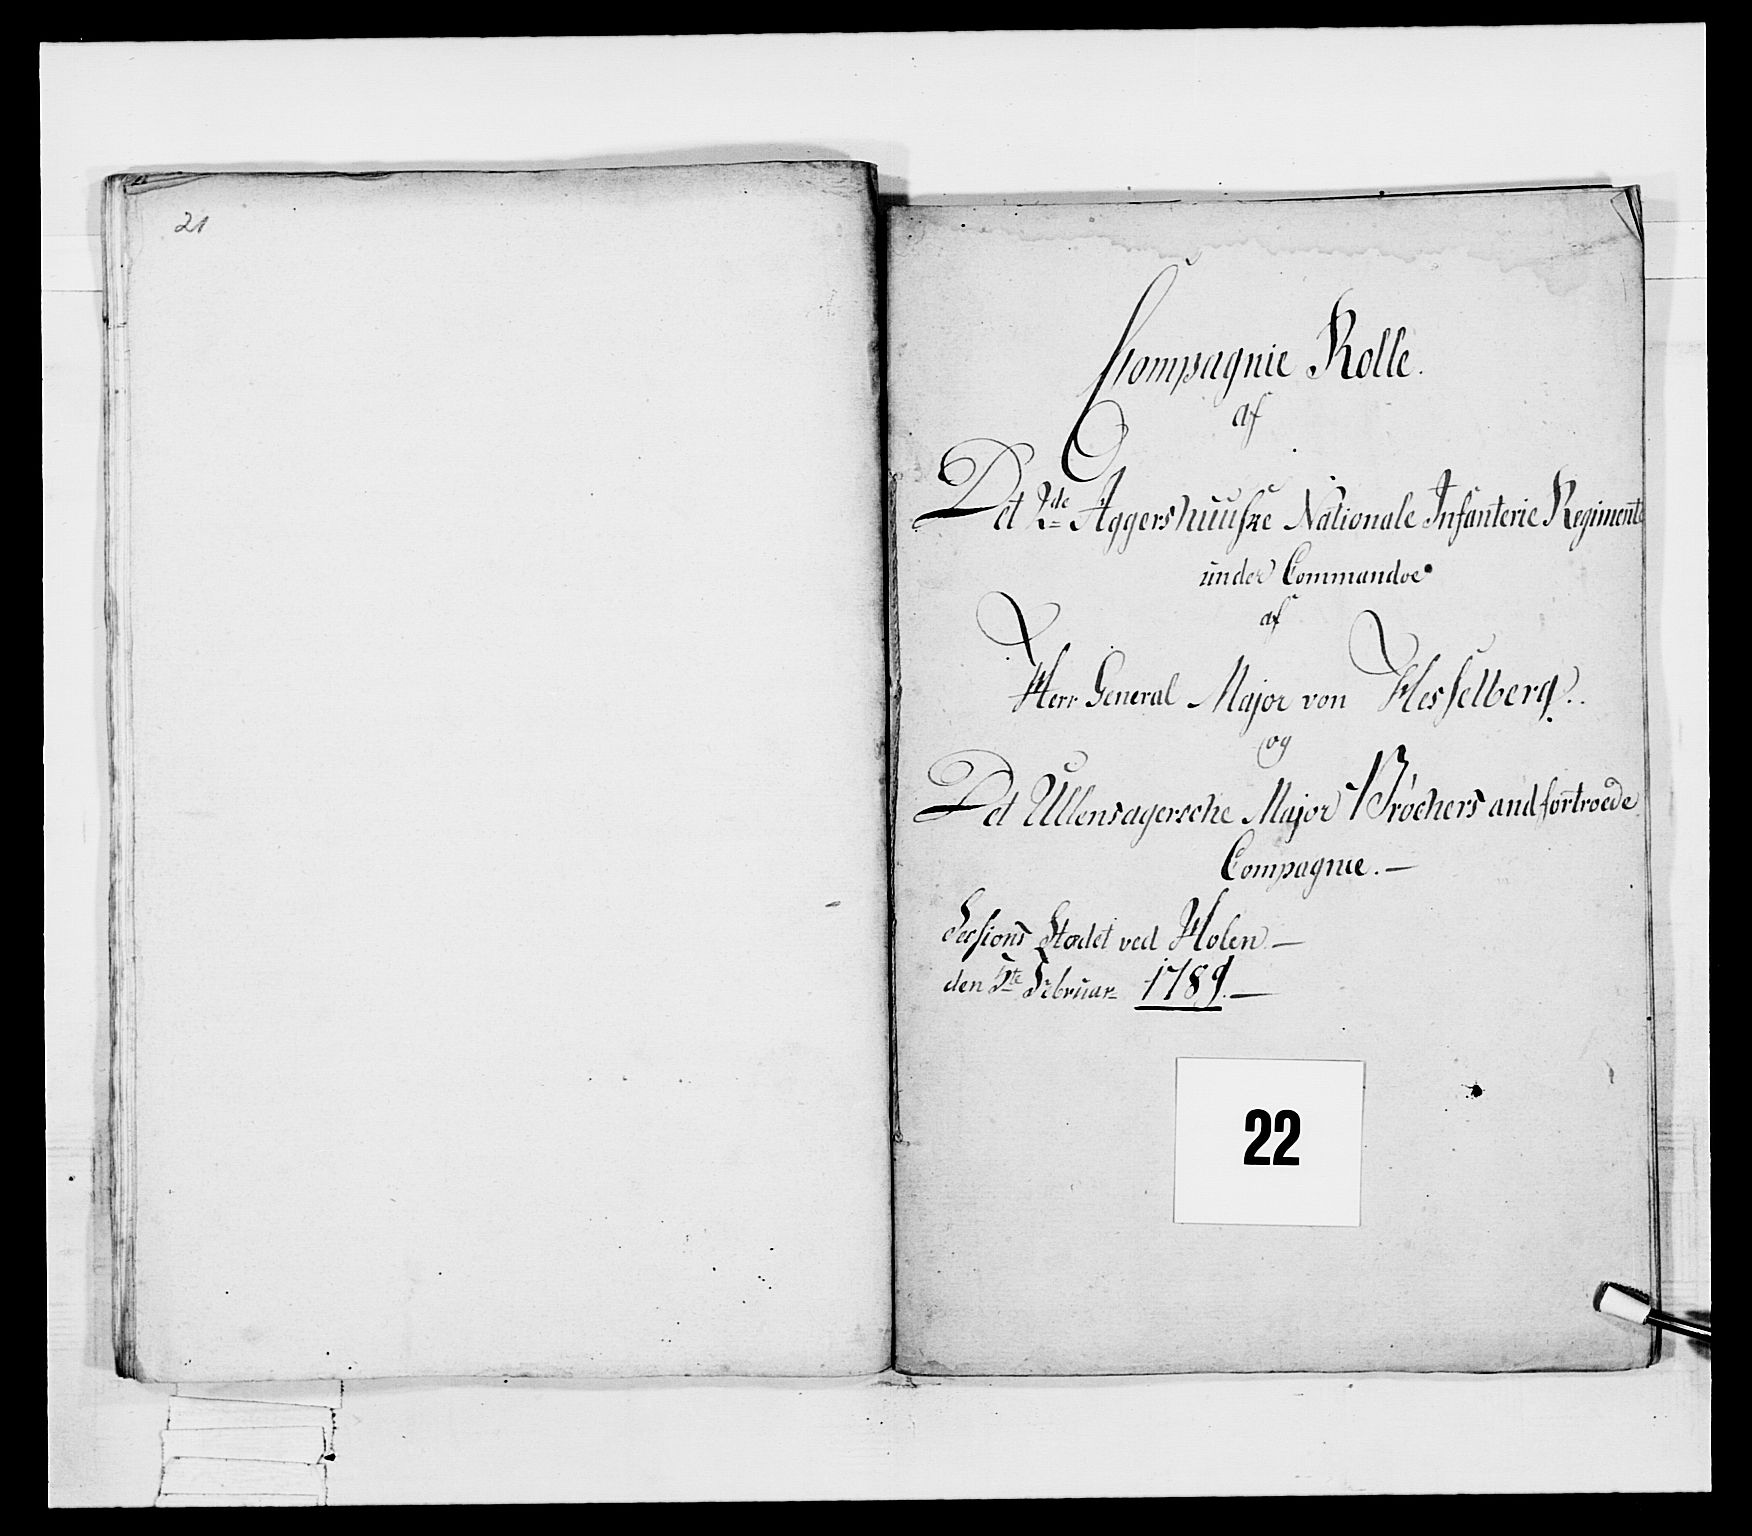 21
Compagnie Rolle.
af
Det 2de Aggershuuske Nationale Infanterie Regiment
under Commandoe
af
Herr General Major von Hesselberg.
og
Det Ullensagersche Major Tröchers andfortroede
Compagnie. —
Sessions Stædet ved Holen —
den 5te Februar 1789. —
22